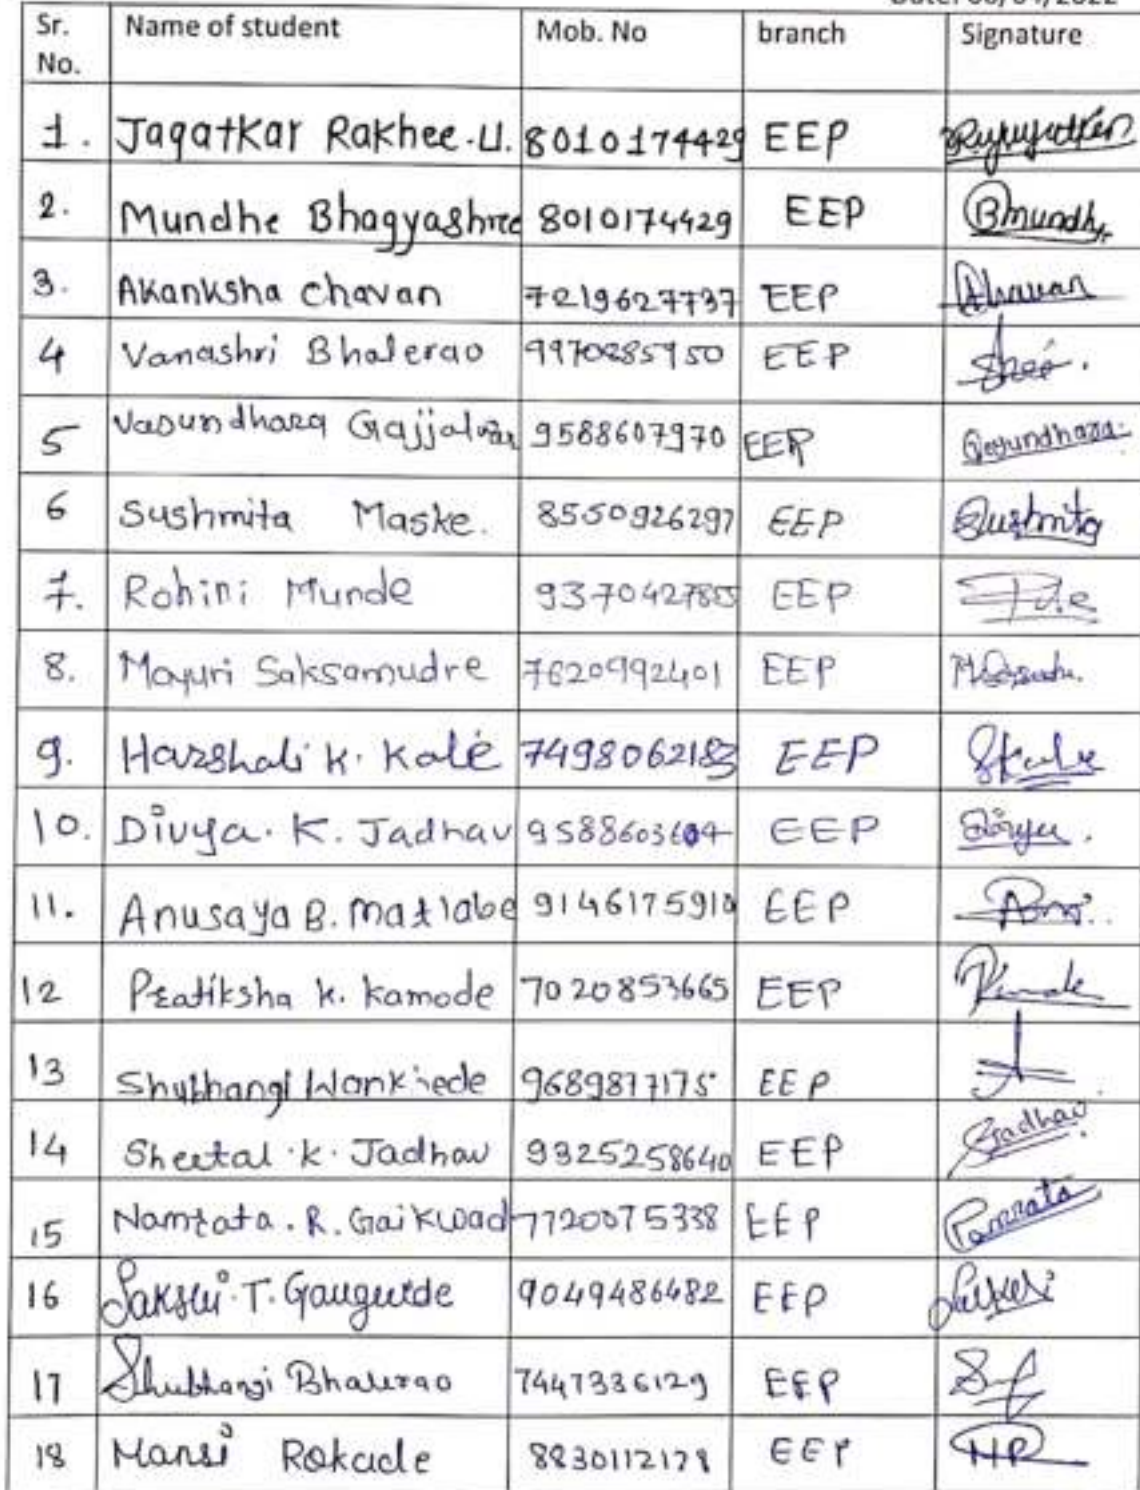 Date: 06/04/2022
Sr. No. Name of student Mob. No branch Signature
1. Jagatkar Rakhee.U. 8010174429 EEP
2. Mundhe Bhagyashree 8010174429 EEP Bmundhe
3. Akanksha chavan 7219627737 EEP Chavan
4 Vanashri Bhalerao 9970285950 EEP Shree.
5 Vasundhara Gajjalwar 9588607970 EEP Vasundhara
6 Sushmita Maske. 8550926297 EEP Sushmita
7. Rohini Munde 9370427855 EEP
8. Mayuri Saksamudre 7620992401 EEP
9. Harshali K. Kale 7498062183 EEP Skale
10. Divya. K. Jadhav 9588603604 EEP Divya.
11. Anusaya B. Matlabe 9146175910 EEP
12 Pratiksha K. Kamode 7020853665 EEP
13 Shubhangi Wankhede 9689877175 EEP
14 Sheetal K. Jadhav 9325258640 EEP Jadhav
15 Namrata. R. Gaikwad 7720075338 EEP Namrata
16 Sakshi T. Gaugurde 9049486482 EEP Sakshi
17 Shubhangi Bhalerao 7447336129 EEP
18 Mansi Rokade 8830112178 EEP MR